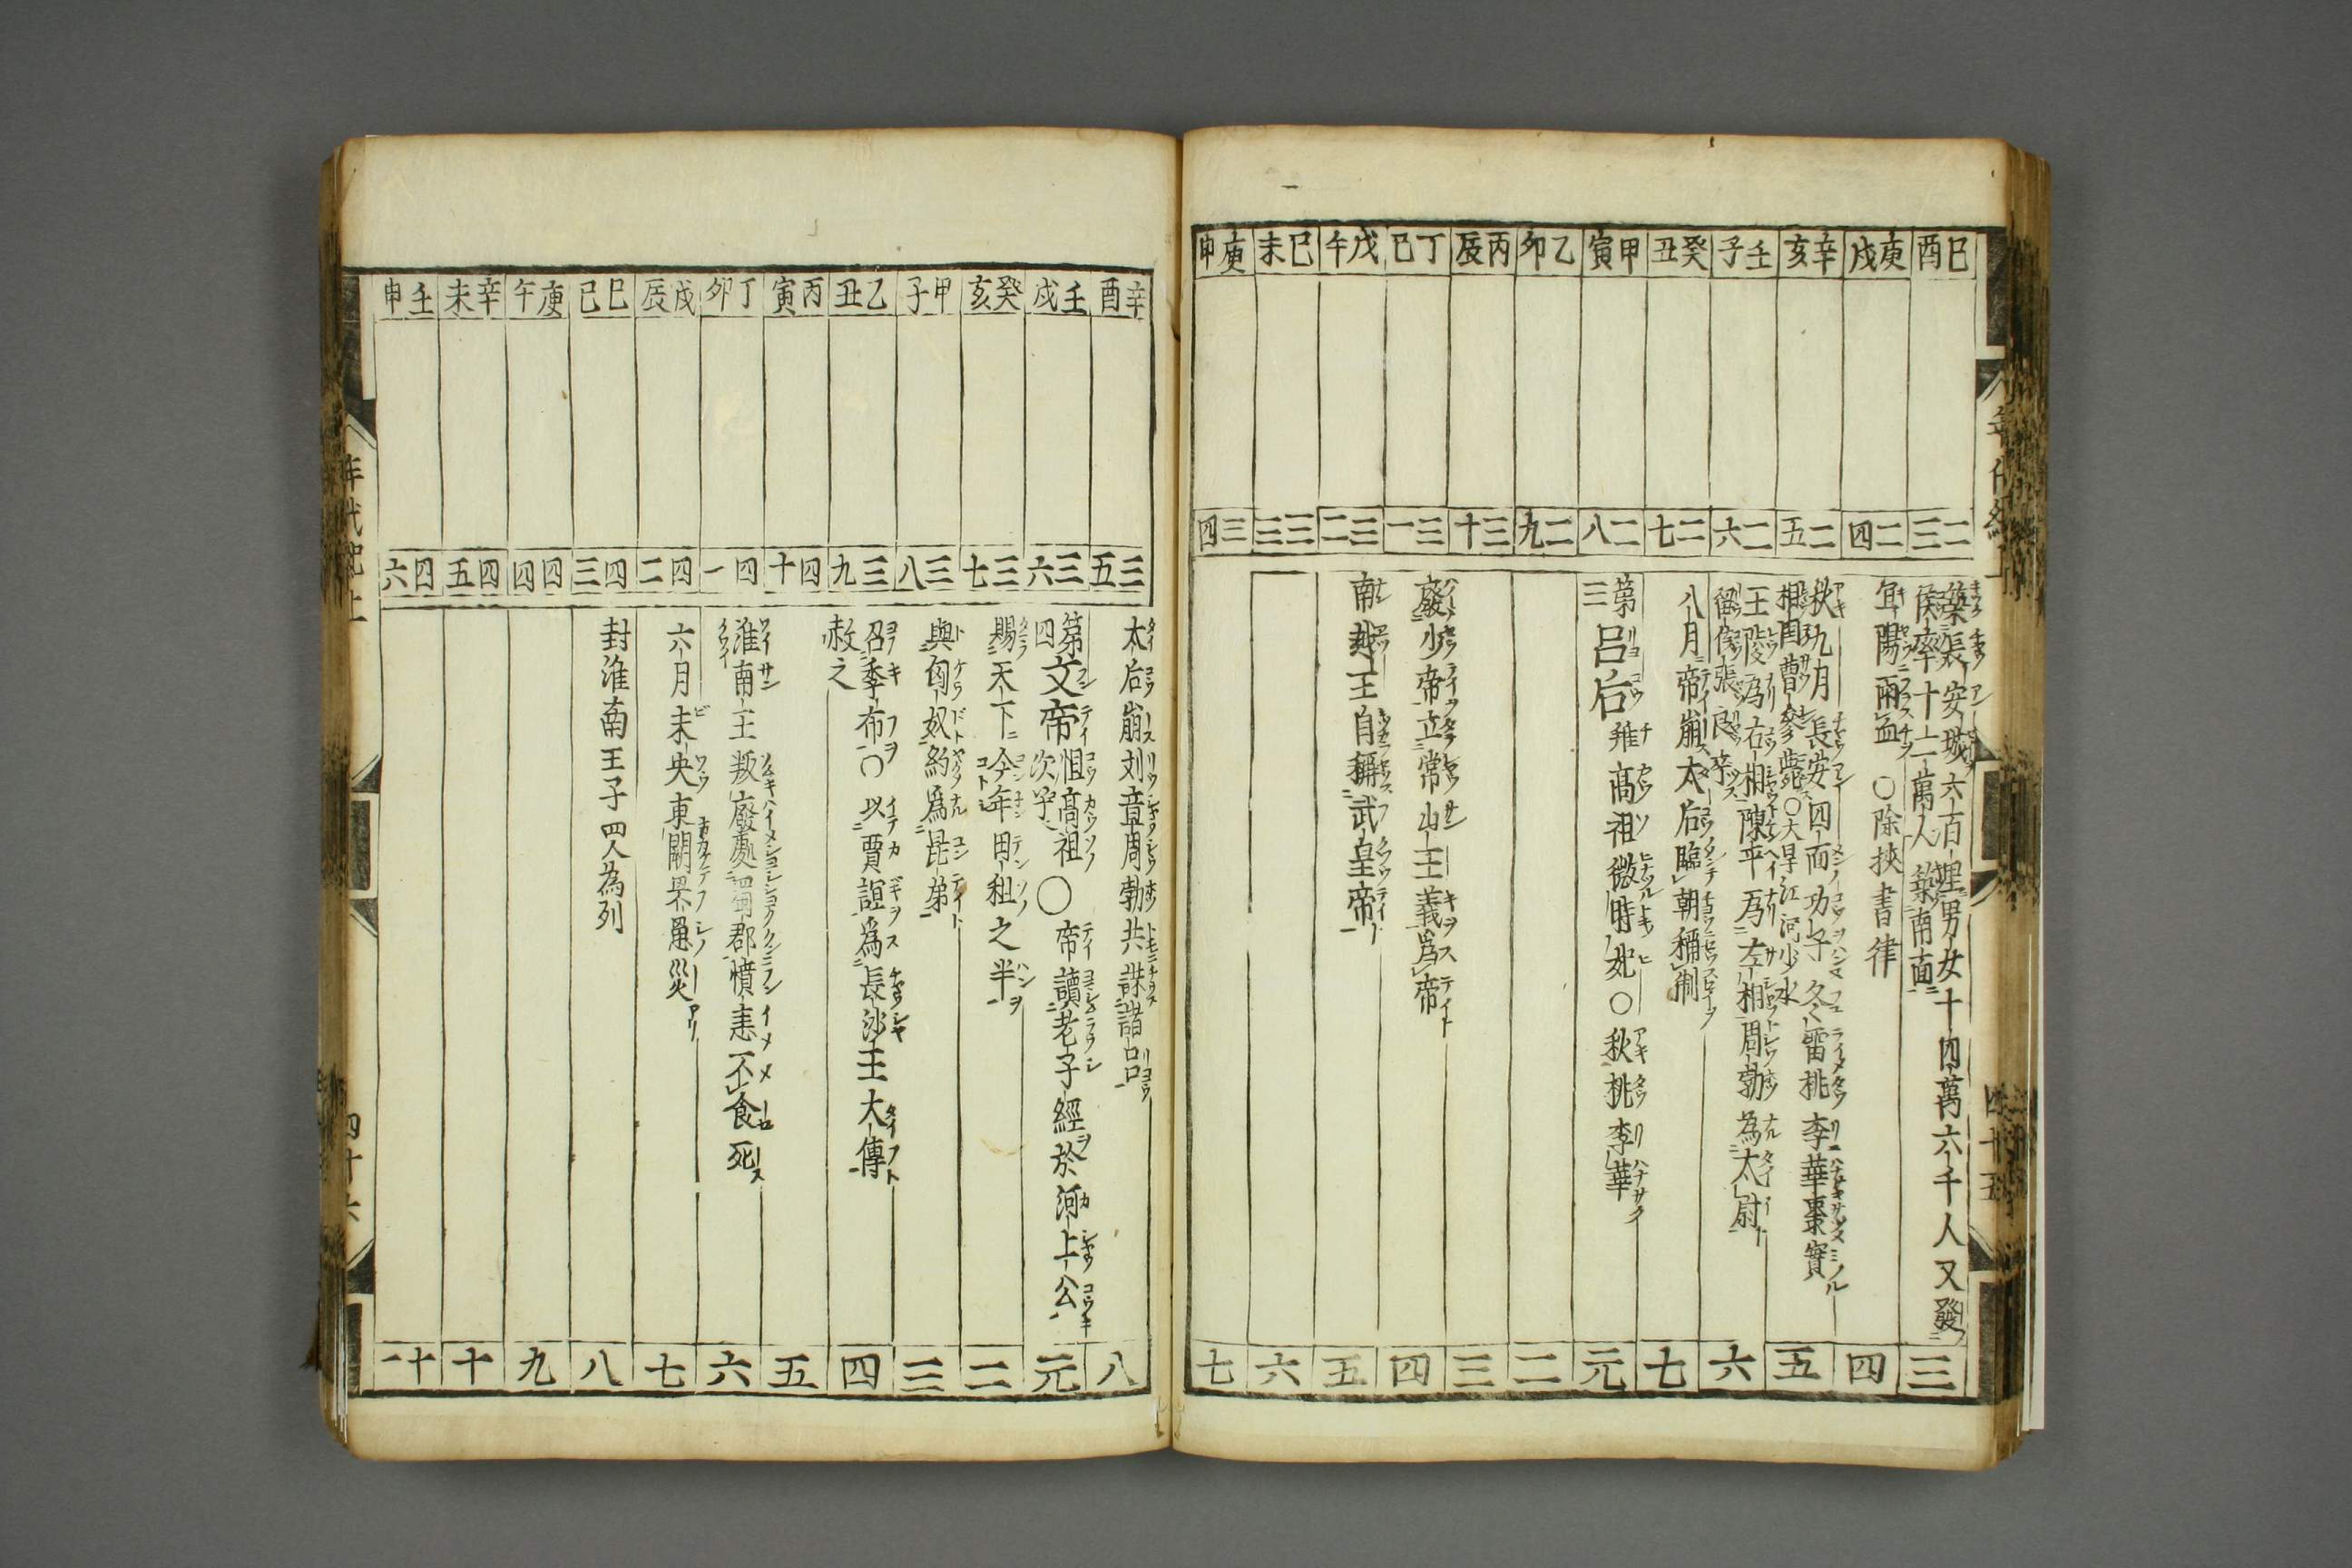 己酉
庚戌
辛亥
壬子
癸丑
甲寅
乙卯
丙辰
丁巳
戊午
己未
庚申
二三
二四
二五
二六
二七
二八
二九
三十
三一
三二
三三
三四
築長安城六百里男女十四萬六千人又發
侯率十二萬人築南面
宜陽雨血○除挾書律
秋九月長安四面功了冬雷桃李華棗實
相国曹參薨○大旱江河少水
王陵為右相陳平為左相周勃為太尉
留侯張良卒
八月帝崩太后臨朝稱制
第三 呂后 雉高祖微時妃○秋桃李華
廢少帝立常山王義為帝
南越王自稱武皇帝
三
四
五
六
七
元
二
三
四
五
六
七
四十五
辛酉
壬戌
癸亥
甲子
乙丑
丙寅
丁卯
戊辰
己巳
庚午
辛未
壬申
三五
三六
三七
三八
三九
四十
四一
四二
四三
四四
四五
四六
太后崩刘章周勃共誅諸呂
第四 文帝 恒高祖次子○帝讀老子經於河上公
賜天下今年田租之半
與匈奴約為昆弟
召季布○以賈誼為長沙王大傅
赦之
淮南王叛廢處蜀郡憤恚不食死
六月未央東闕罘罳災
封淮南王子四人為列
八
元
二
三
四
五
六
七
八
九
十
十一
年代記上
四十六